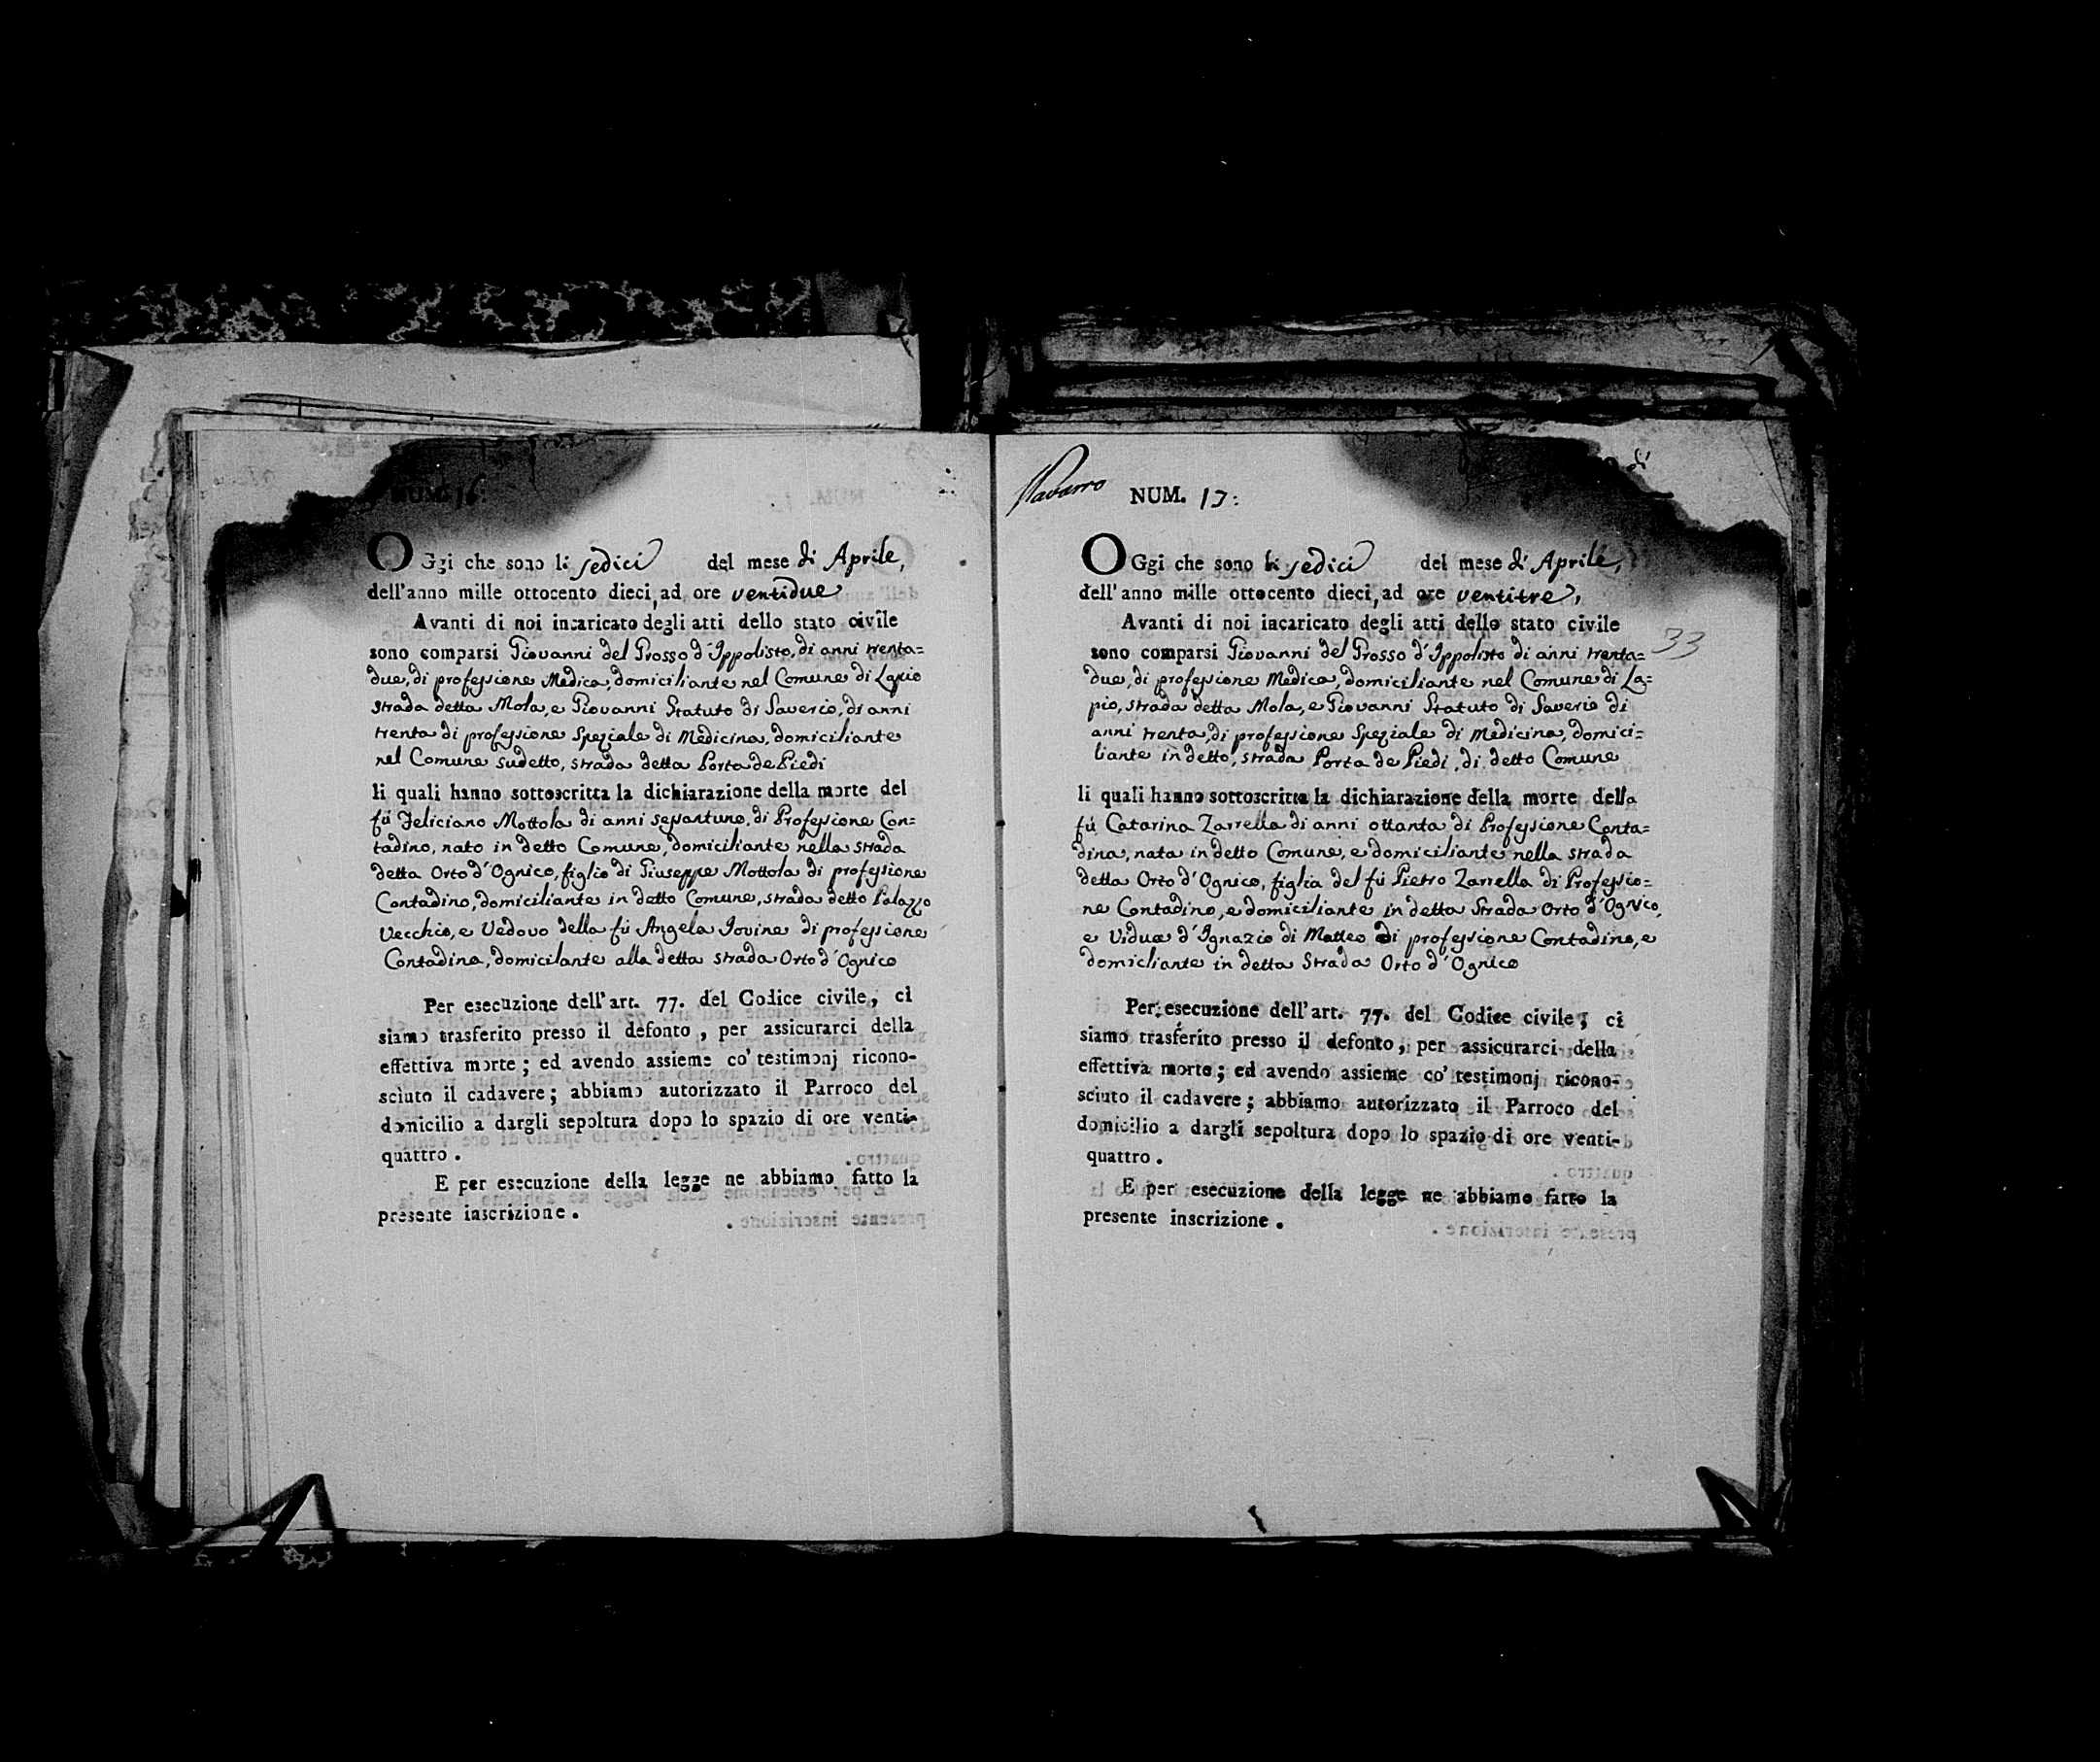 NUM. 16:
OGgi che sono li sedici del mese di Aprile,
dell'anno mille ottocento dieci, ad ore ventidue
Avanti di noi incaricato degli atti dello stato civile
sono comparsi Giovanni del Grosso d'Ippolisto, di anni trenta=
due, di professione Medica, domiciliante nel Comune di Lapio
strada detta Mola, e Giovanni Statuto di Saverio, di anni
trenta di professione Speziale di Medicina, domiciliante
nel Comune sudetto, strada detta Porta de Piedi
li quali hanno sottoscritta la dichiarazione della morte del
fù Feliciano Mottola di anni sessantuno, di Professione Con=
tadino, nato in detto Comune, domiciliante nella strada
detta Orto d'Ognico, figlio di Giuseppe Mottola di professione
Contadino, domiciliante in detto Comune, strada detto Palazzo
Vecchio, e Vedovo della fù Angela Iovine di professione
Contadina, domicilante alla detta strada Orto d'Ognico
Per esecuzione dell'art. 77. del Codice civile, ci
siamo trasferito presso il defonto, per assicurarci della
effettiva morte; ed avendo assieme co' testimonj ricono-
sciuto il cadavere; abbiamo autorizzato il Parroco del
domicilio a dargli sepoltura dopo lo spazio di ore venti-
quattro.
E per esecuzione della legge ne abbiamo fatto la
presente inscrizione.
Navarro NUM. 17:
OGgi che sono li sedici del mese di Aprile,
dell'anno mille ottocento dieci, ad ore ventitre,
Avanti di noi incaricato degli atti dello stato civile
sono comparsi Giovanni del Grosso d'Ippolisto di anni trenta= 33
due, di professione Medica, domiciliante nel Comune di La=
pio, strada detta Mola, e Giovanni Statuto di Saverio di
anni trenta, di professione Speziale di Medicina, domici=
liante in detto, strada Porta de Piedi, di detto Comune
li quali hanno sottoscritta la dichiarazione della morte della
fù Catarina Zarrella di anni ottanta di Professione Conta=
dina, nata in detto Comune, e domiciliante nella strada
detta Orto d'Ognico, figlia del fù Pietro Zarrella di Professio=
ne Contadino, e domiciliante in detta Strada Orto d'Ognico,
e Vidua d'Ignazio di Matteo di professione Contadino, e
domicliante in detta Strada Orto d'Ognico
Per esecuzione dell'art. 77. del Codice civile, ci
siamo trasferito presso il defonto, per assicurarci della
effettiva morte; ed avendo assieme co' testimonj ricono-
sciuto il cadavere; abbiamo autorizzato il Parroco del
domicilio a dargli sepoltura dopo lo spazio di ore venti-
quattro.
E per esecuzione della legge ne abbiamo fatto la
presente inscrizione.